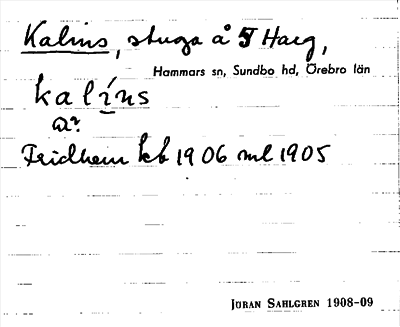 Kalins, stuga å Haeg,
Hammars sn, Sundbo hd, Örebro län
kalins
a?
Fridhem kb 1906 ml 1905
JÖRAN SAHLGREN 1908-09